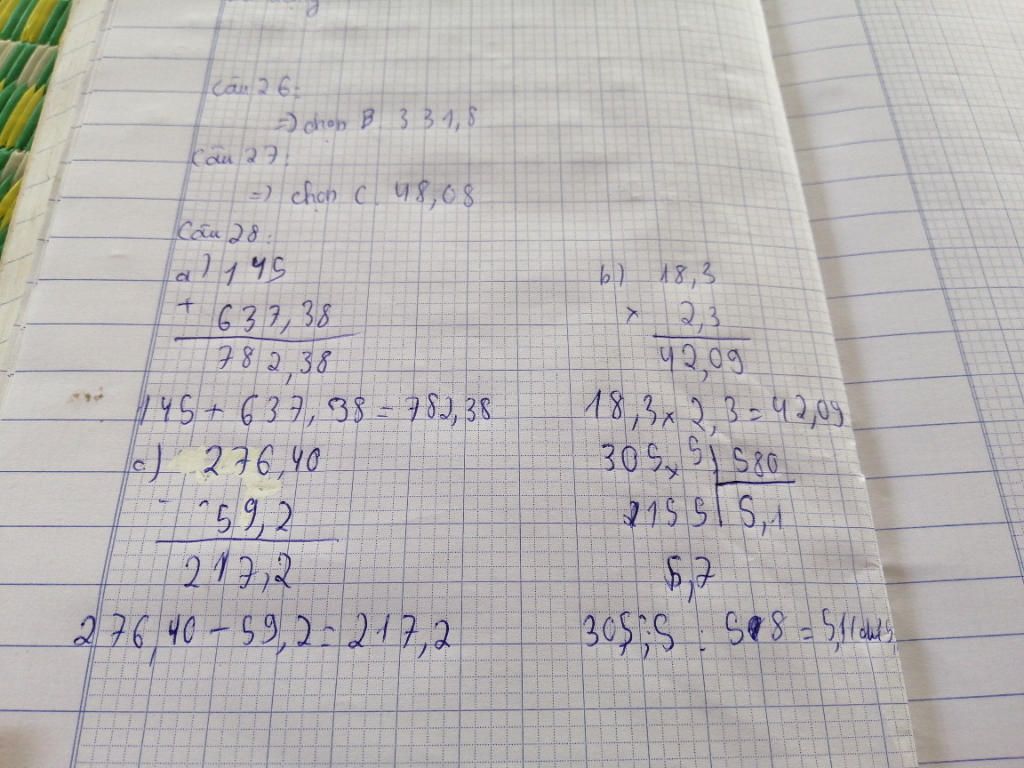 Câu 26:
=) chọn B. 331,8
Câu 27:
=) chọn C. 48,08
Câu 28:
a) 145
+ 637,38
782,38
145 + 637,38 = 782,38
b) 18,3
x 2,3
42,09
18,3 x 2,3 = 42,09
c) 276,40
- 59,2
217,2
276,40 - 59,2 = 217,2
305,5 580
2155 5,1
5,7
305,5 : 58 = 5,1